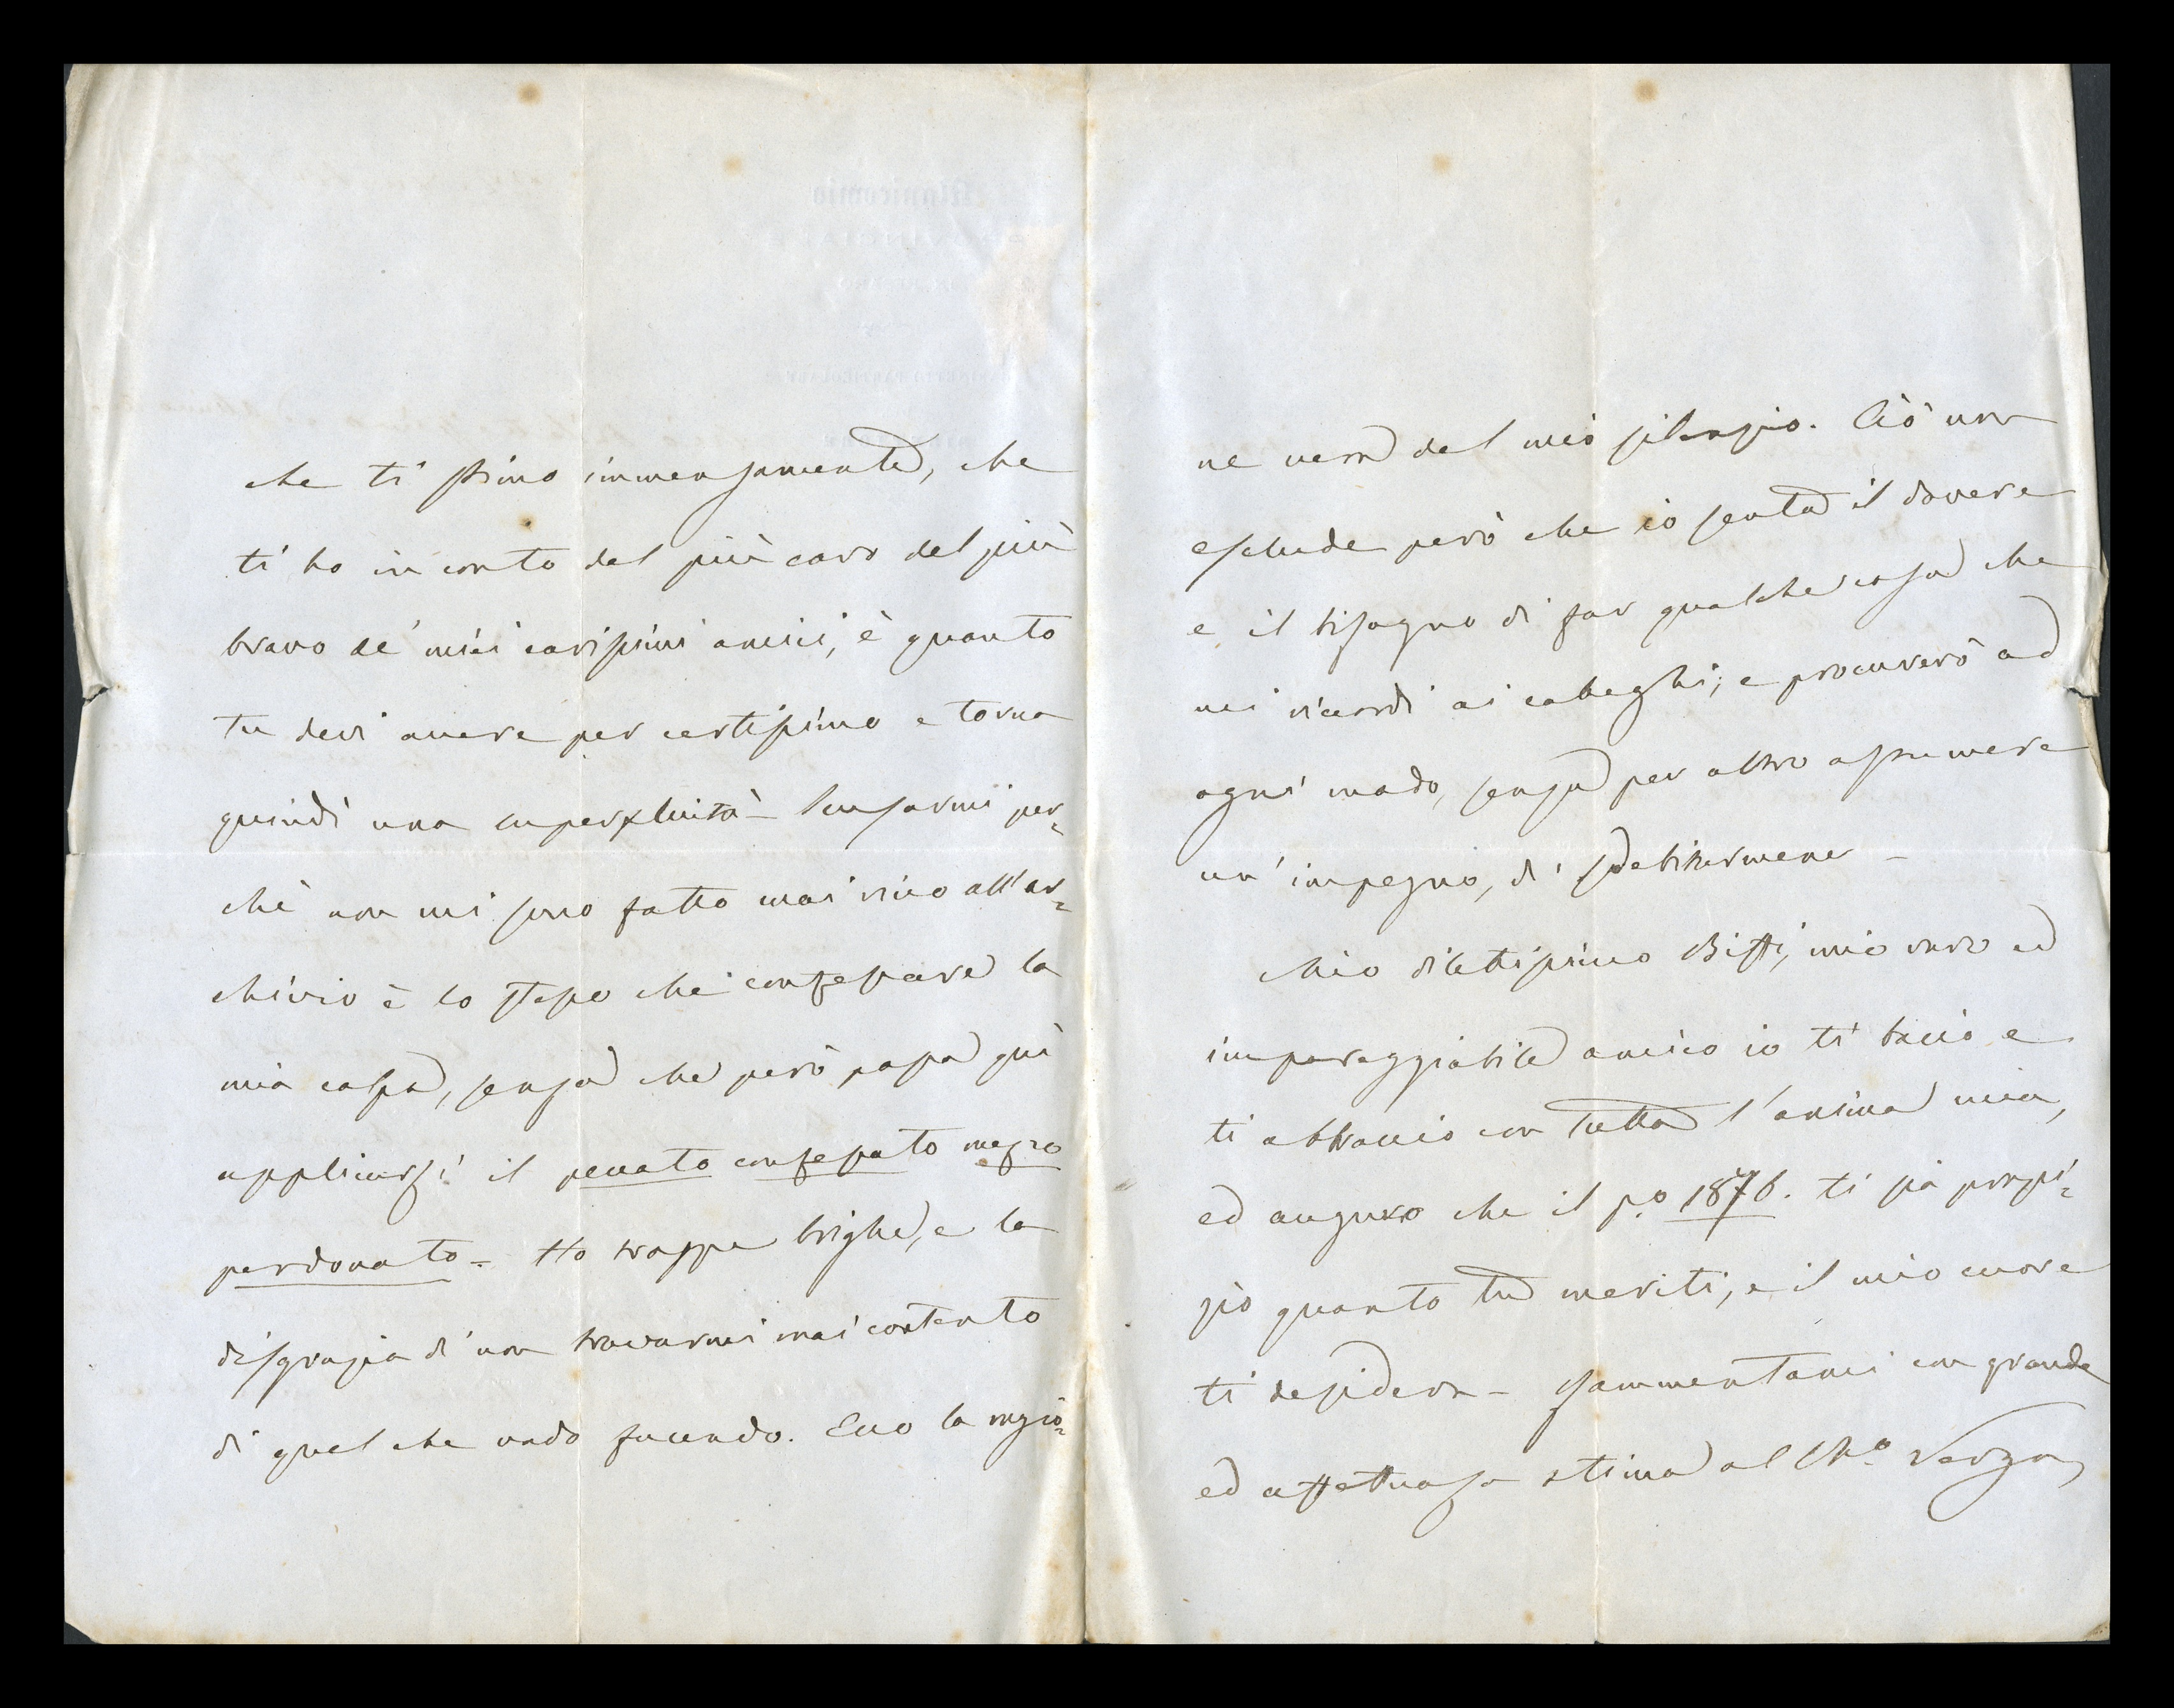 che ti stimo immensamente, che
ti ho in conto del più caro del più
bravo de' miei carissimi amici, è quanto
tu devi avere per certissimo e torna
quindi una superfluità – Scusarmi per=
chè non mi sono fatto mai vivo all'ar=
chivio è lo stesso che confessare la
mia colpa, senza che però possa quì
applicarsi il peccato confessato mezzo
perdonato – Ho troppe brighe, e la
disgrazia di non trovarmi mai contento
di quel che vado facendo. Ecco la ragio=
ne vera del mio silenzio. Ciò non
esclude però che io senta il dovere
e il bisogno di far qualche cosa che
mi ricordi ai colleghi; e procurerò ad
ogni modo, senza per altro assumere
un' impegno, di sdebitarmene –
Mio dilettissimo Biffi, mio caro ed
impareggiabile amico io ti bacio e
ti abbraccio con tutta l'anima mia,
ed auguro che il p.o 1876. ti sia propi=
zio quanto tu meriti, e il mio cuore
ti desidera – Rammentami con grande
ed affettuosa stima al Ch.o Verga,